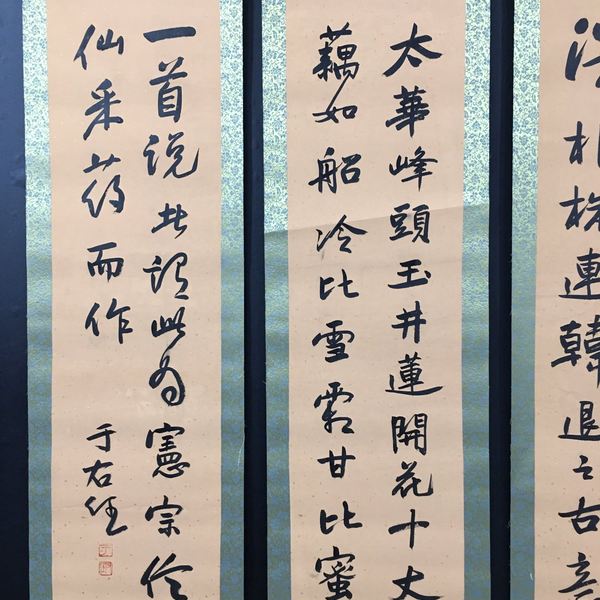 株連韓退之古意
太華峰頭玉井蓮開花十丈
藕如船冷比雪霜甘比蜜
一首説者謂此為憲宗信
仙采药而作
于右任